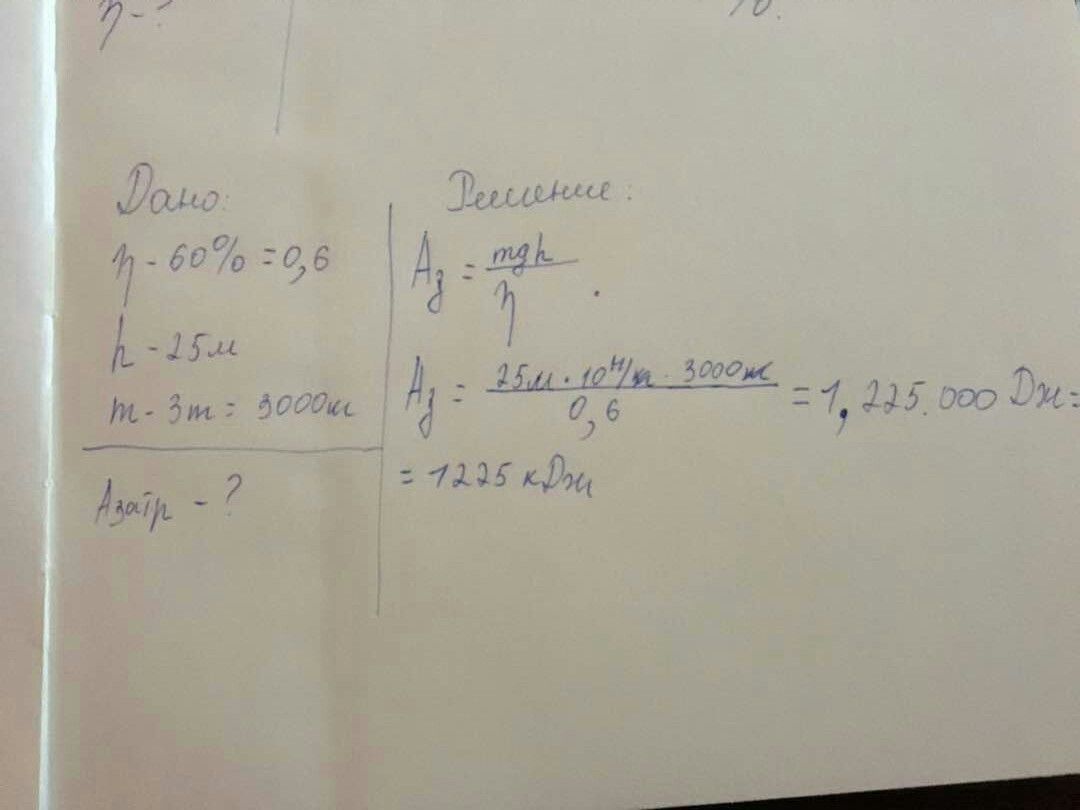 η - ?
Дано:
η - 60% = 0,6
h - 25м
m - 3т = 3000кг
Aзатр - ?
Решение:
Aз = mgh / η
Aз = 25м · 10 Н/кг · 3000кг / 0,6 = 1,225.000 Дж =
= 1225 кДж